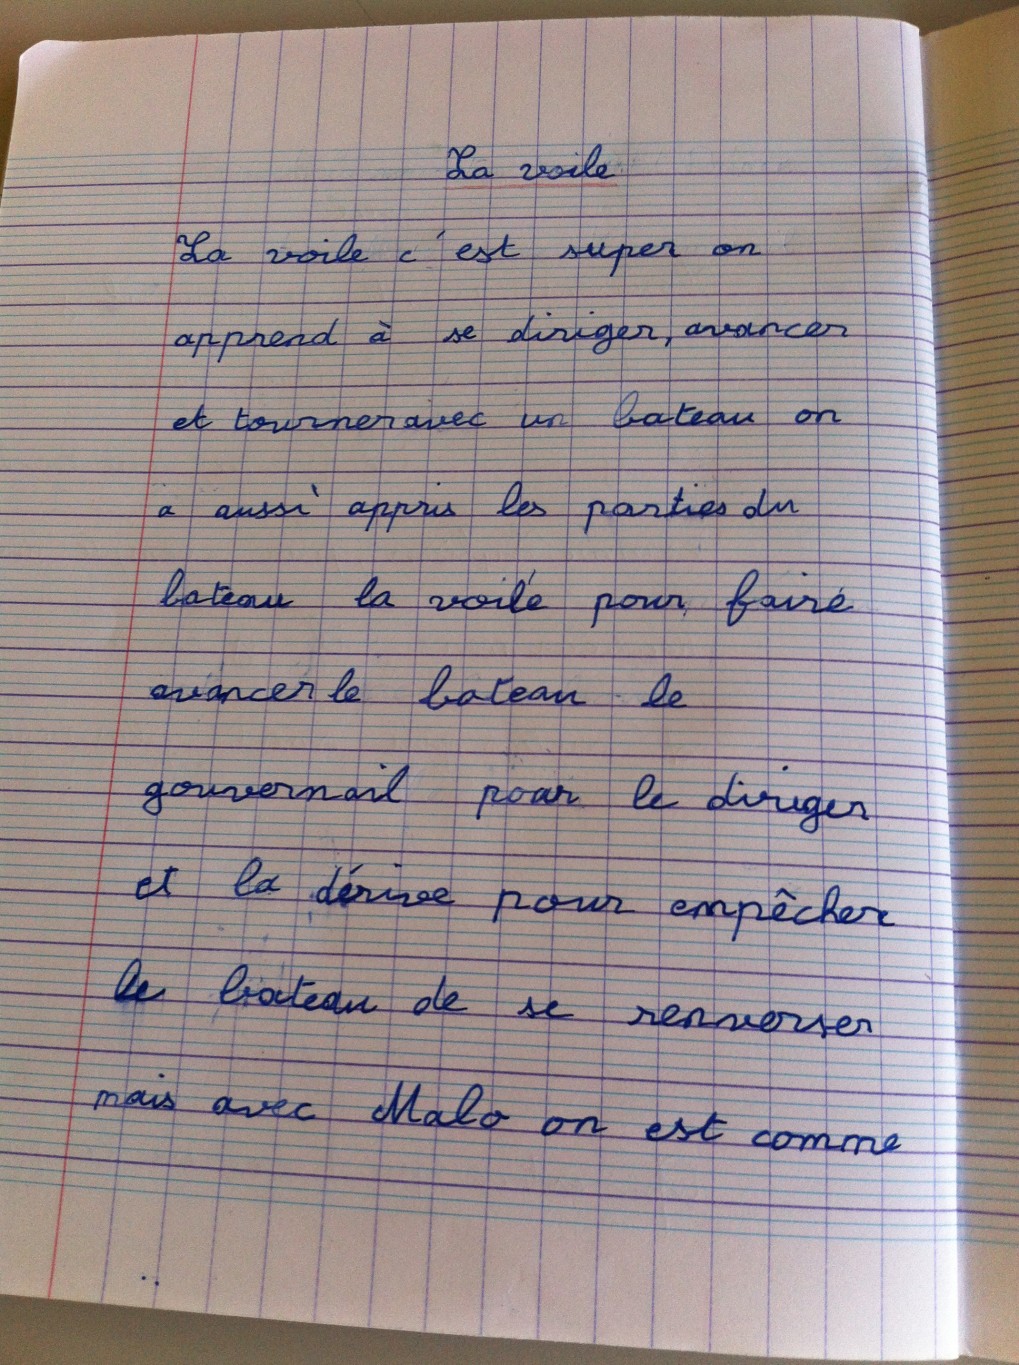 La voile
La voile c'est super on
apprend à se diriger, avancer
et tourner avec un bateau on
a aussi appris les parties du
bateau la voile pour faire
avancer le bateau le
gouvernail pour le diriger
et la dérive pour empêcher
le bateau de se renverser
mais avec Malo on est comme